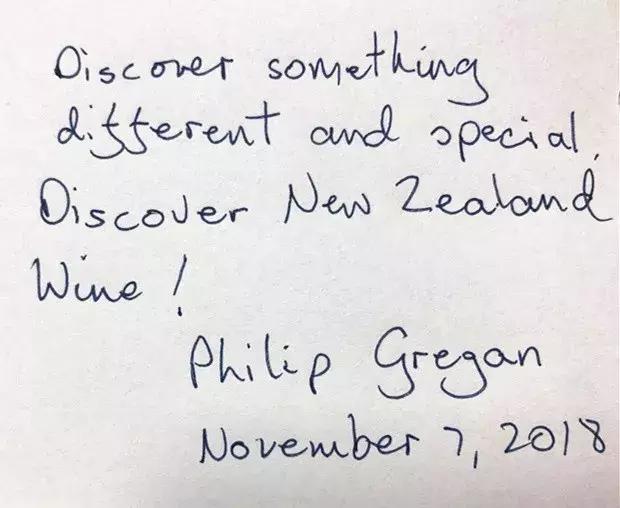 Discover something
different and special.
Discover New Zealand
Wine!
Philip Gregan
November 7, 2018